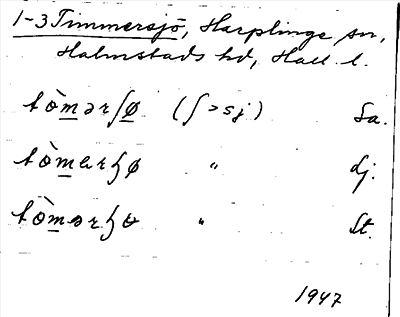 1-3 Timmersjö, Harplinge sn,
Halmstads hd, Hall. l.
tòmərʃø (ʃ > sj) Sa.
tòmɐrʃø " dj.
tòmər " St.
1947